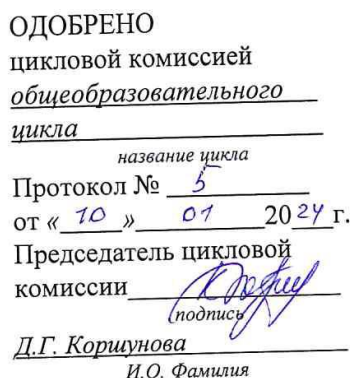 ОДОБРЕНО
цикловой комиссией
общеобразовательного
цикла
название цикла
Протокол № 5
от « 10 » 01 2024 г.
Председатель цикловой
комиссии
(подпись
Д.Г. Коршунова
И.О. Фамилия